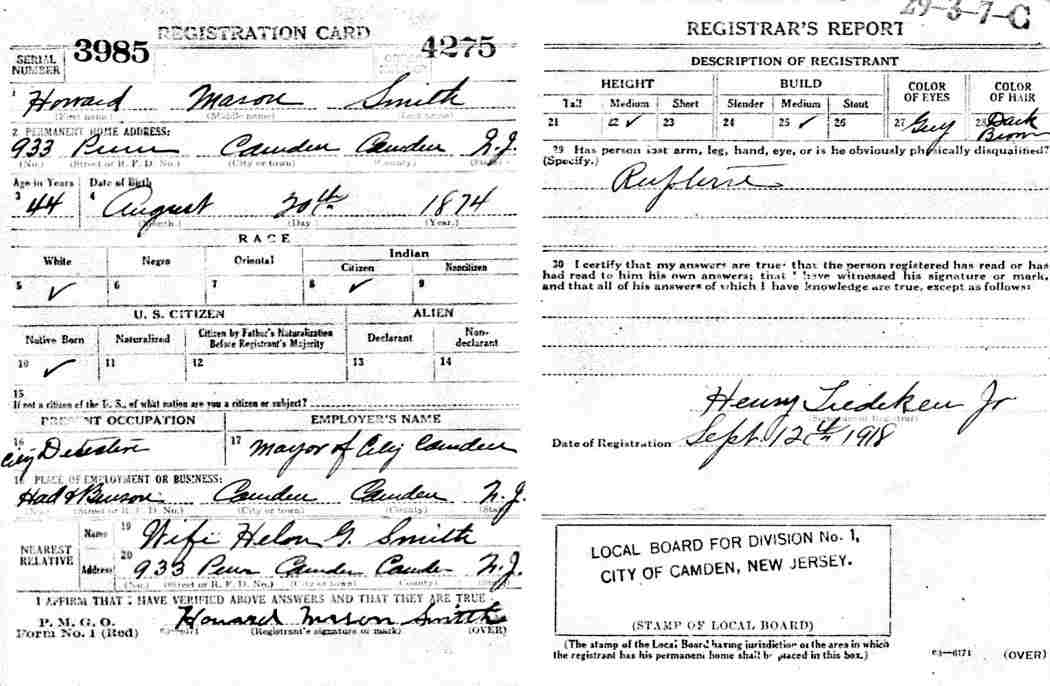 REGISTRATION CARD
SERIAL NUMBER 3985 4275
1 Howard Mason Smith
(First name) (Middle name) (Last name)
2 PERMANENT HOME ADDRESS:
933 Penn Camden Camden N.J.
(No.) (Street or R. F. D. No.) (City or town) (County) (State)
Age in Years Date of Birth
3 44 4 August 20th 1874
(Month.) (Day) (Year.)
RACE
White Negro Oriental Indian
Citizen Noncitizen
5 ✓ 6 7 8 ✓ 9
U. S. CITIZEN ALIEN
Native Born Naturalized Citizen by Father's Naturalization Before Registrant's Majority Declarant Non-declarant
10 ✓ 11 12 13 14
15
If not a citizen of the U. S., of what nation are you a citizen or subject?
PRESENT OCCUPATION EMPLOYER'S NAME
16 City Detective 17 Mayor of City Camden
18 PLACE OF EMPLOYMENT OR BUSINESS:
Had & Benson Camden Camden N.J.
(No.) (Street or R. F. D. No.) (City or town) (County) (State)
NEAREST RELATIVE Name 19 Wife Helon G. Smith
Address 20 933 Penn Camden Camden N.J.
(No.) (Street or R. F. D. No.) (City or town) (County) (State)
I AFFIRM THAT I HAVE VERIFIED ABOVE ANSWERS AND THAT THEY ARE TRUE
P. M. G. O.
Form No. 1 (Red) 03-6171 Howard Mason Smith
(Registrant's signature or mark) (OVER)
29-3-7-C
REGISTRAR'S REPORT
DESCRIPTION OF REGISTRANT
HEIGHT BUILD COLOR OF EYES COLOR OF HAIR
Tall Medium Short Slender Medium Stout
21 22 ✓ 23 24 25 ✓ 26 27 Grey 28 Dark Brown
29 Has person lost arm, leg, hand, eye, or is he obviously physically disqualified?
(Specify.)
Rupture
30 I certify that my answers are true; that the person registered has read or has
had read to him his own answers; that I have witnessed his signature or mark,
and that all of his answers of which I have knowledge are true, except as follows:
Henry Tiedeken Jr
(Signature of Registrar)
Date of Registration Sept. 12th 1918
LOCAL BOARD FOR DIVISION No. 1,
CITY OF CAMDEN, NEW JERSEY.
(STAMP OF LOCAL BOARD)
(The stamp of the Local Board having jurisdiction of the area in which
the registrant has his permanent home shall be placed in this box.)
03-6171 (OVER)